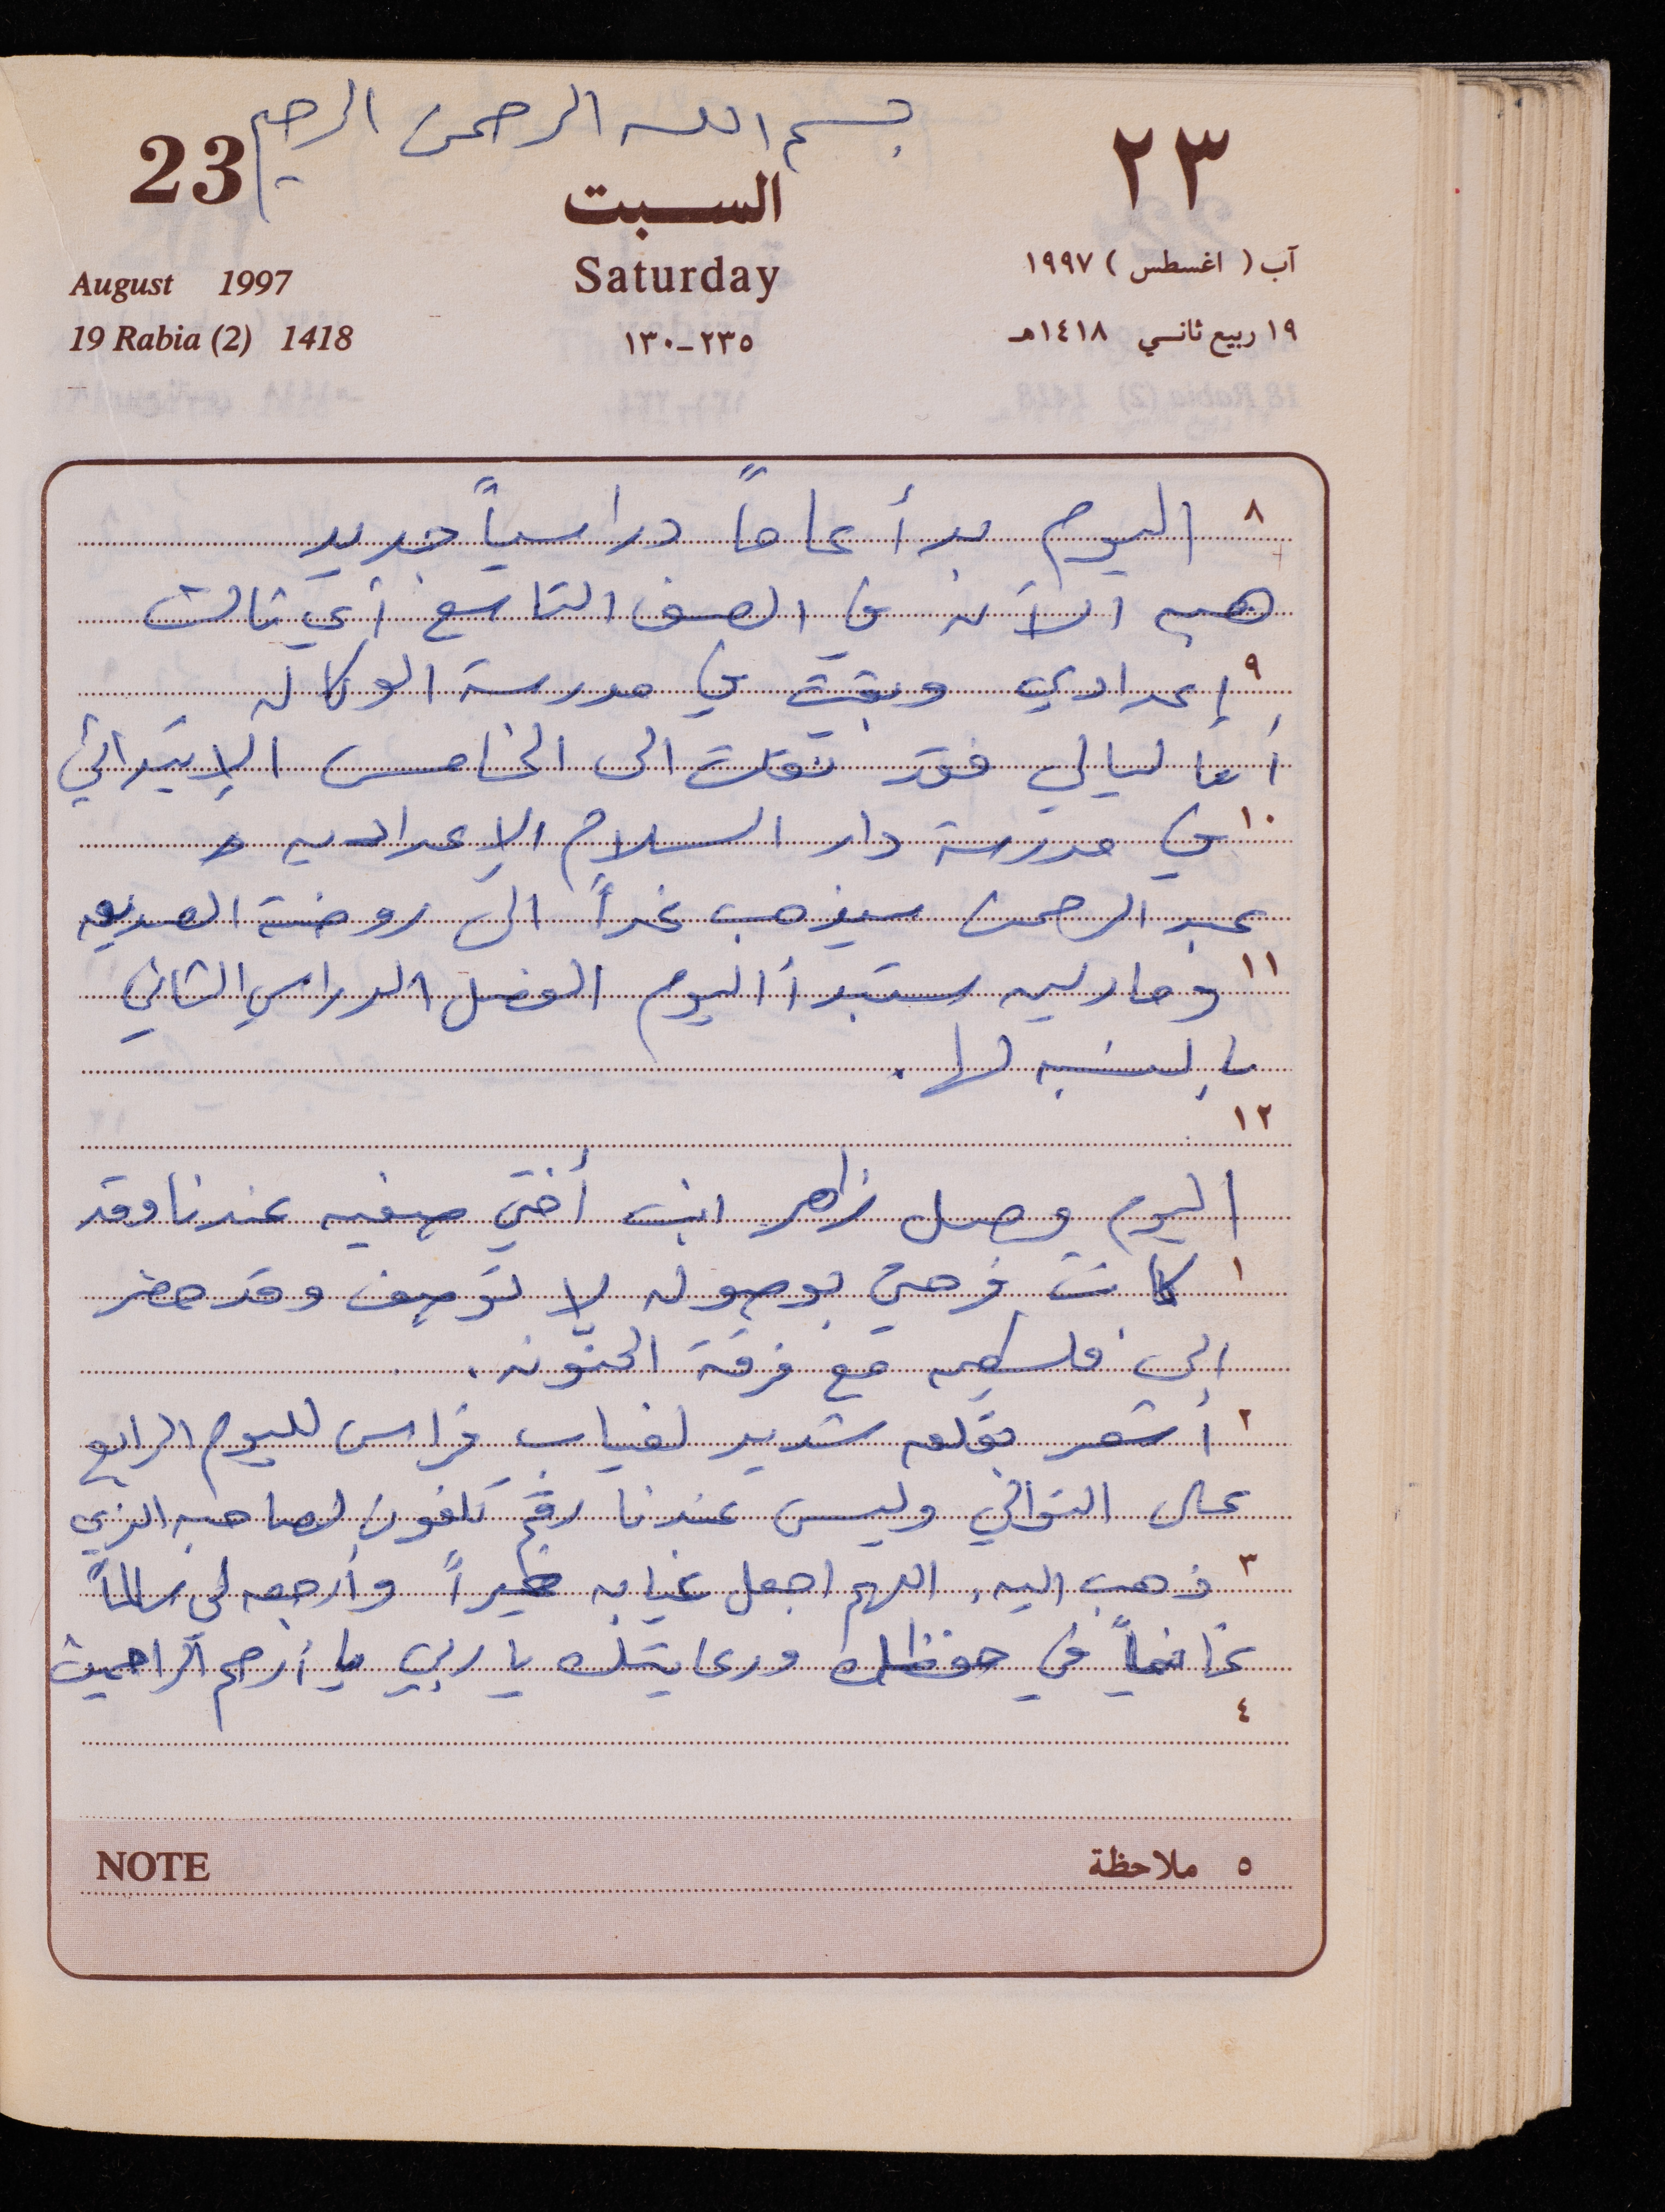 بسم الله الرحمن الرحيم
23 السبت ٢٣
August 1997 Saturday آب ( اغسطس ) ١٩٩٧
19 Rabia (2) 1418 ٢٣٥-١٣٠ ١٩ ربيع ثاني ١٤١٨هـ
٨ اليوم بدأ عاماً دراسياً جديد
هبه الآن في الصف التاسع أي ثالث
٩ إعدادي وبقيت في مدرسة الوكاله
أما ليالي فقد نقلت الى الخامس الإبتدائي
١٠ في مدرسة دار السلام الإعداديه و
عبد الرحمن سيذهب غداً الى روضة الصديق
١١ ومارليه ستبدأ اليوم الفصل الدراسي الثاني
بالنسبه لها.
١٢
اليوم وصل زاهر ابن أختي صفيه عندنا وقد
١ كانت فرحتي بوصوله لا توصف وقد حضر
إلى فلسطين مع فرقة الحنّونه.
٢ أشعر بقلق شديد لغياب فراس لليوم الرابع
على التوالي وليس عندنا رقم تلفون لصاحبه الذي
٣ ذهب اليه. اللهم اجعل غيابه خيراً وأرجعه لي سالماً
غانماً في حفظك ورعايتك يا ربي يا أرحم الراحمين
٤
NOTE ٥ ملاحظة